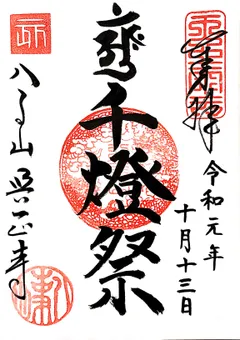 奉拝
令和元年
十月十三日
千燈祭
八事山 興正寺